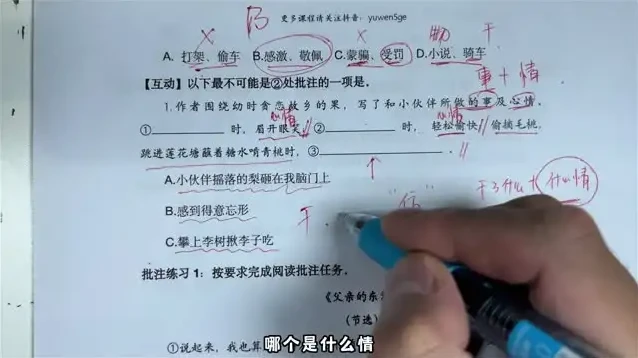 B 更多课程请关注抖音：yuwen5ge
物 干
A. 打架、偷车 B.感激、敬佩 C.蒙骗、受罚 D.小说、骑车
事+情
【互动】以下最不可能是②处批注的一项是。
1.作者围绕幼时贪恋故乡的果，写了和小伙伴所做的事及心情。
心情 心情
① 时，眉开眼笑；② 时，轻松愉快 偷摘毛桃，
跳进莲花塘蘸着糖水啃青桃时，③ 。
A.小伙伴摇落的梨砸在我脑门上
干了什么+什么情
B.感到得意忘形
干
C.攀上李树揪李子吃
批注练习1：按要求完成阅读批注任务。
《父亲的东
（节选）
①说起来，我也算
哪个是什么情